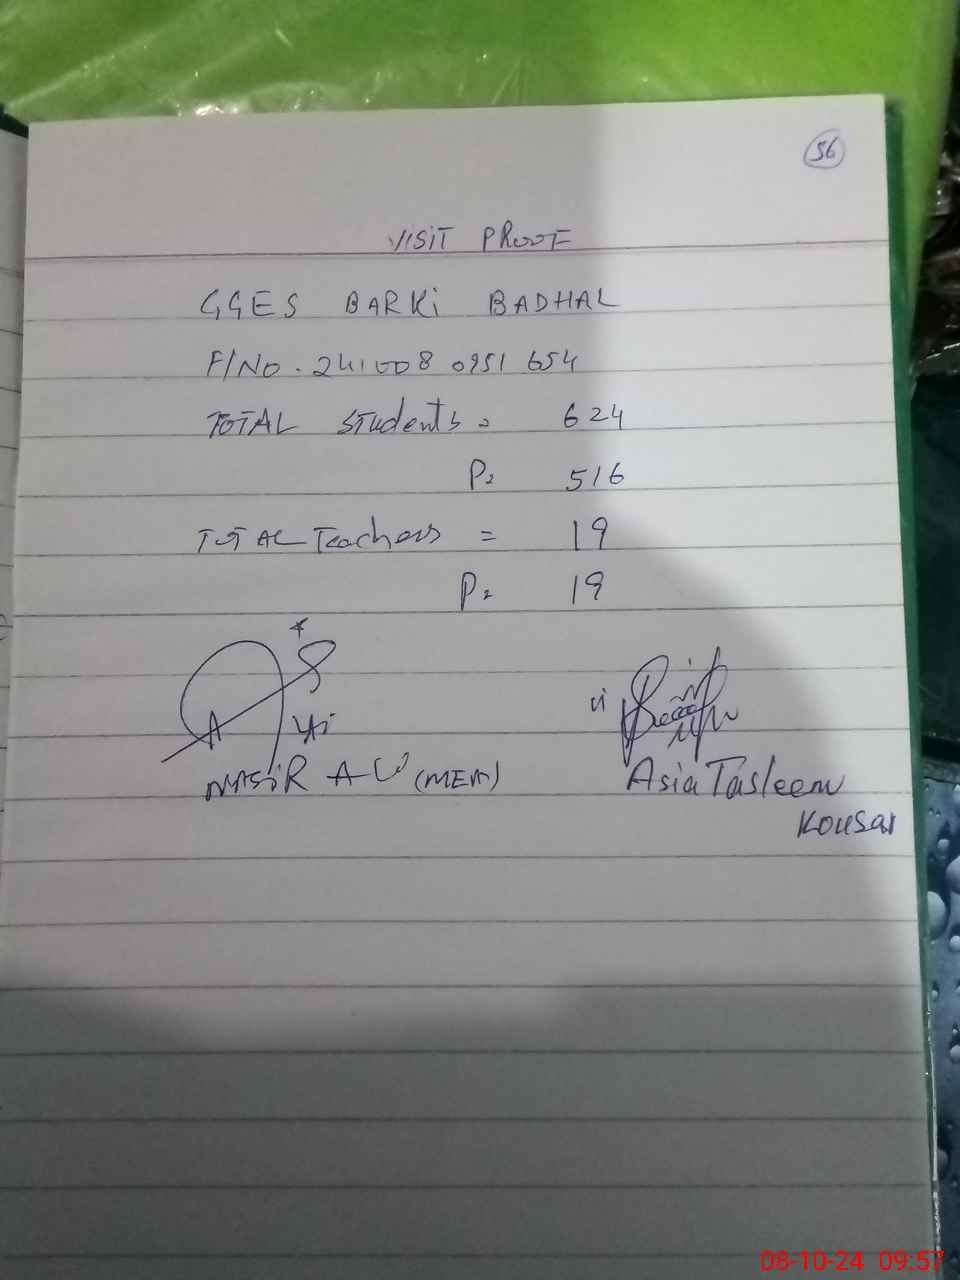 56
VISIT PROOF
GGES BARKI BADHAL
F/NO. 241008 0951 654
TOTAL Students = 624
P= 516
TOTAL Teachers = 19
P= 19
NASIR ALI (MEA)
Asia Tasleem
Kousar
08-10-24 09:57